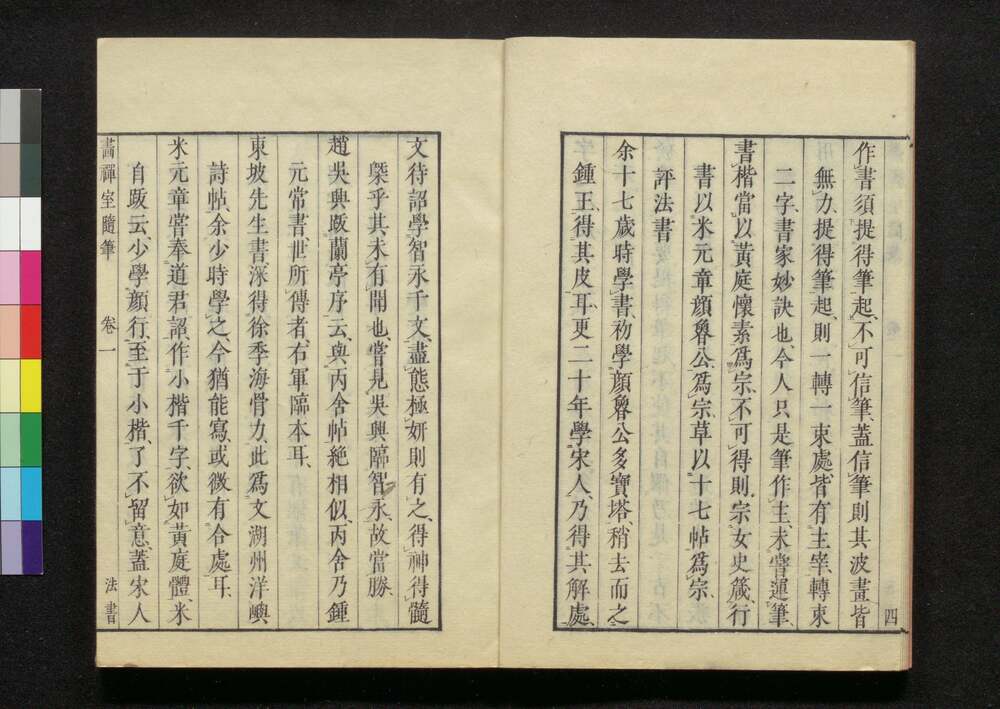 作書須提得筆起、不可信筆、蓋信筆則其波畫皆
無力、提得筆起、則一轉一束處皆有主宰、轉束
二字、書家妙訣也、今人只是筆作主、未嘗運筆、
書楷當以黃庭懷素爲宗、不可得則宗女史箴、行
書以米元章顏魯公爲宗、草以十七帖爲宗、
評法書
余十七歲時學書、初學顏魯公多寶塔、稍去而之
鍾王、得其皮耳、更二十年學宋人、乃得其解處、
四
文待詔學智永千文、盡態極妍則有之、得神得髓、
槩乎其未有聞也、嘗見吳興臨智永故當勝、
趙吳興跋蘭亭序云、與丙舍帖絶相似、丙舍乃鍾
元常書、世所傳者、右軍臨本耳、
東坡先生書、深得徐季海骨力、此爲文湖州洋嶼
詩帖、余少時學之、今猶能寫、或微有合處耳、
米元章嘗奉道君詔、作小楷千字、欲如黃庭體、米
自跋云、少學顏行、至于小楷、了不留意、蓋宋人
畫禪室隨筆 卷一 法書